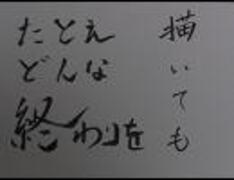 たとえ
どんな
終わりを
描いても